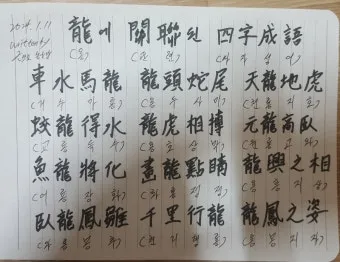 2024. 1. 11
龍에 關聯된 四字成語
(용) (관 련) (사 자 성 어)
車水馬龍 龍頭蛇尾 天龍地虎
(거 수 마 룡) (용 두 사 미) (천 룡 지 호)
蛟龍得水 龍虎相搏 元龍高臥
(교 룡 득 수) (용 호 상 박) (원 룡 고 와)
魚龍將化 畫龍點睛 龍興之相
(어 룡 장 화) (화 룡 점 정) (용 흥 지 상)
臥龍鳳雛 千里行龍 龍鳳之姿
(와 룡 봉 추) (천 리 행 룡) (용 봉 지 자)